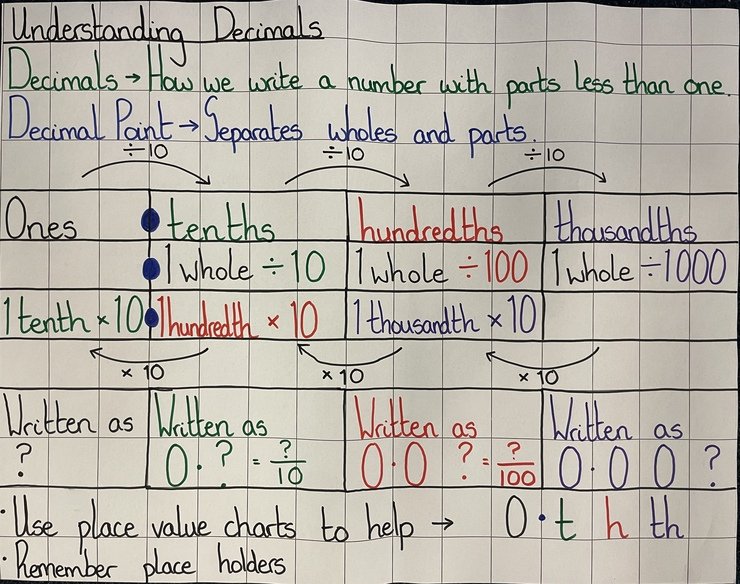 Understanding Decimals
Decimals → How we write a number with parts less than one.
Decimal Point → Separates wholes and parts.
÷10 ÷10 ÷10
Ones • tenths hundredths thousandths
• 1 whole ÷ 10 1 whole ÷ 100 1 whole ÷ 1000
1 tenth × 10 • 1 hundredth × 10 1 thousandth × 10
× 10 × 10 × 10
Written as Written as Written as Written as
? 0.? = ?/10 0.0 ? = ?/100 0.0 0 ?
· Use place value charts to help → 0.t h th
· Remember place holders